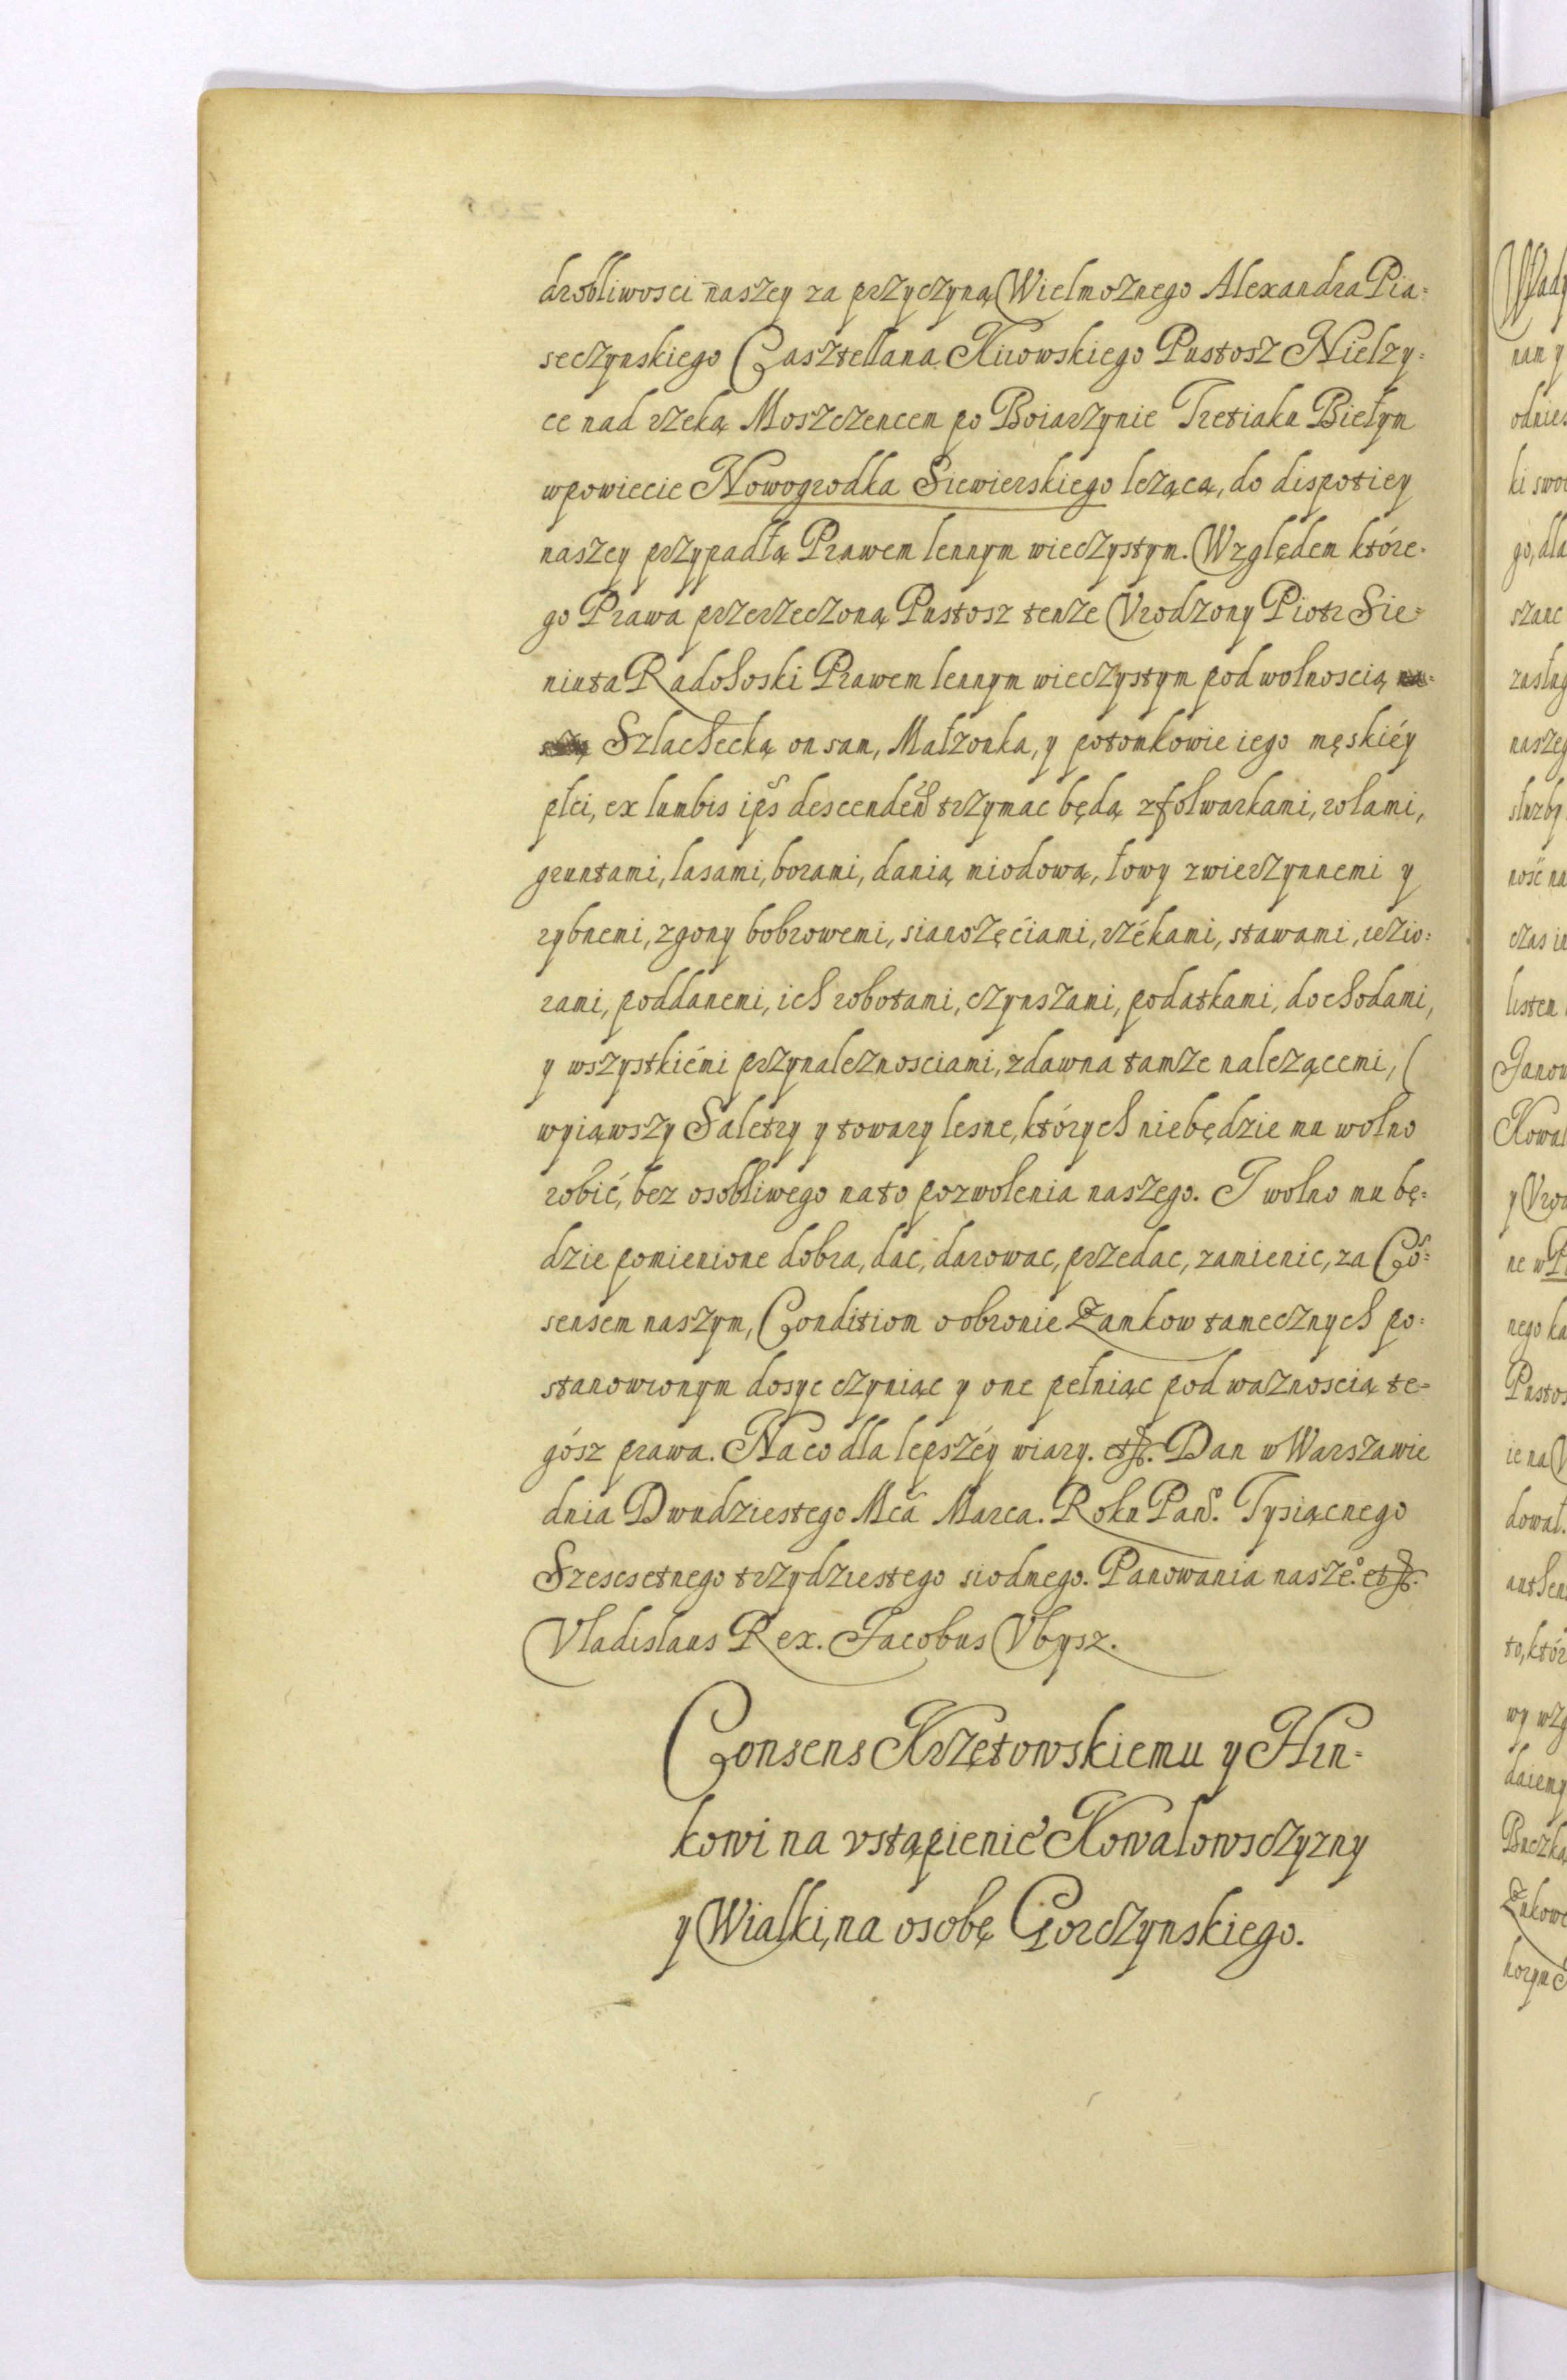 drobliwosci naszey za przyczyną Wielmoznego Alexandra Pia=
seczynskiego Casztellana Kiiowskiego Pustosz Nielzy=
ce nad rzeką Moszczencem po Boiarzynie Tretiaku Biełym
wpowiecie Nowogrodka Siewierskiego leząca, do dispotiey
naszey przypadłą Prawem lennym wieczystym. Względem które=
go Prawa przerzeczoną Pustosz tenze Vrodzony Piotr Sie=
niuta Radohoski Prawem lennym wieczystym pod wolnoscią
Szlachecką on sam, Małzonka, y potomkowie iego męskiéy
płci, ex lumbis ips descenden trzymac będą zfolwarkami, rolami,
gruntami, lasami, borami, danią miodową, łowy zwierzynnemi y
rybnemi, zgony bobrowemi, sianozęciami, rzékami, stawami, iezio=
rami, poddanemi, ich robotami, czynszami, podatkami, dochodami,
y wszystkiémi przynaleznosciami, zdawna tamze nalezącemi, (
wyiąwszy Saletry y towary lesne, których niebędzie mu wolno
robić, bez osobliwego nato pozwolenia naszego. I wolno mu bę=
dzie pomienione dobra, dac, darowac, przedac, zamienic, za Cõ=
sensem naszym, Conditiom o obronie Zamkow tamecznych po=
stanowionym dosyc czyniąc y one pełniąc pod waznoscią te=
gósz prawa. Na co dla lepszéy wiary. etc. Dan w Warszawie
dnia Dwudziestego Mca Marca. Roku Pań. Tysiącnego
Szescsetnego trzydziestego siodmego. Panowania nasze°. etc.
Vladislaus Rex. Jacobus Vbysz.
Consens Krzętowskiemu y Hin=
kowi na vstąpienie Kowalowsczyzny
y Wialki, na osobę Gorczynskiego.